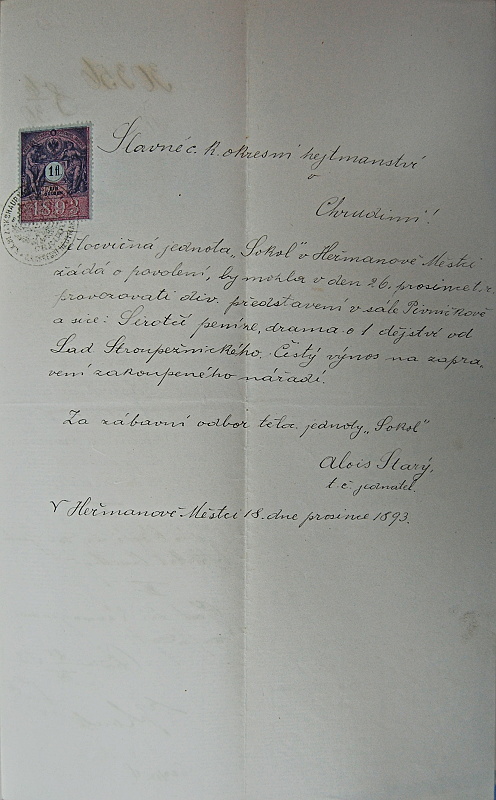 1 fl
1893
Slavné c. k. okresní hejtmanství
v
Chrudimi!
Tělocvičná jednota „Sokol“ v Heřmanově Městci
žádá o povolení, by mohla v den 26. prosince t. r.
provozovati div. představení v sále Pivničkově
a sice: Sirotčí peníze, drama o 1 dějství od
Lad Stroupežnického. Čistý výnos na zapra„
vení zakoupeného nářadí.
Za zábavní odbor těloc. jednoty „Sokol“
Alois Starý,
t. č. jednatel.
V Heřmanově Městci 18. dne prosince 1893.